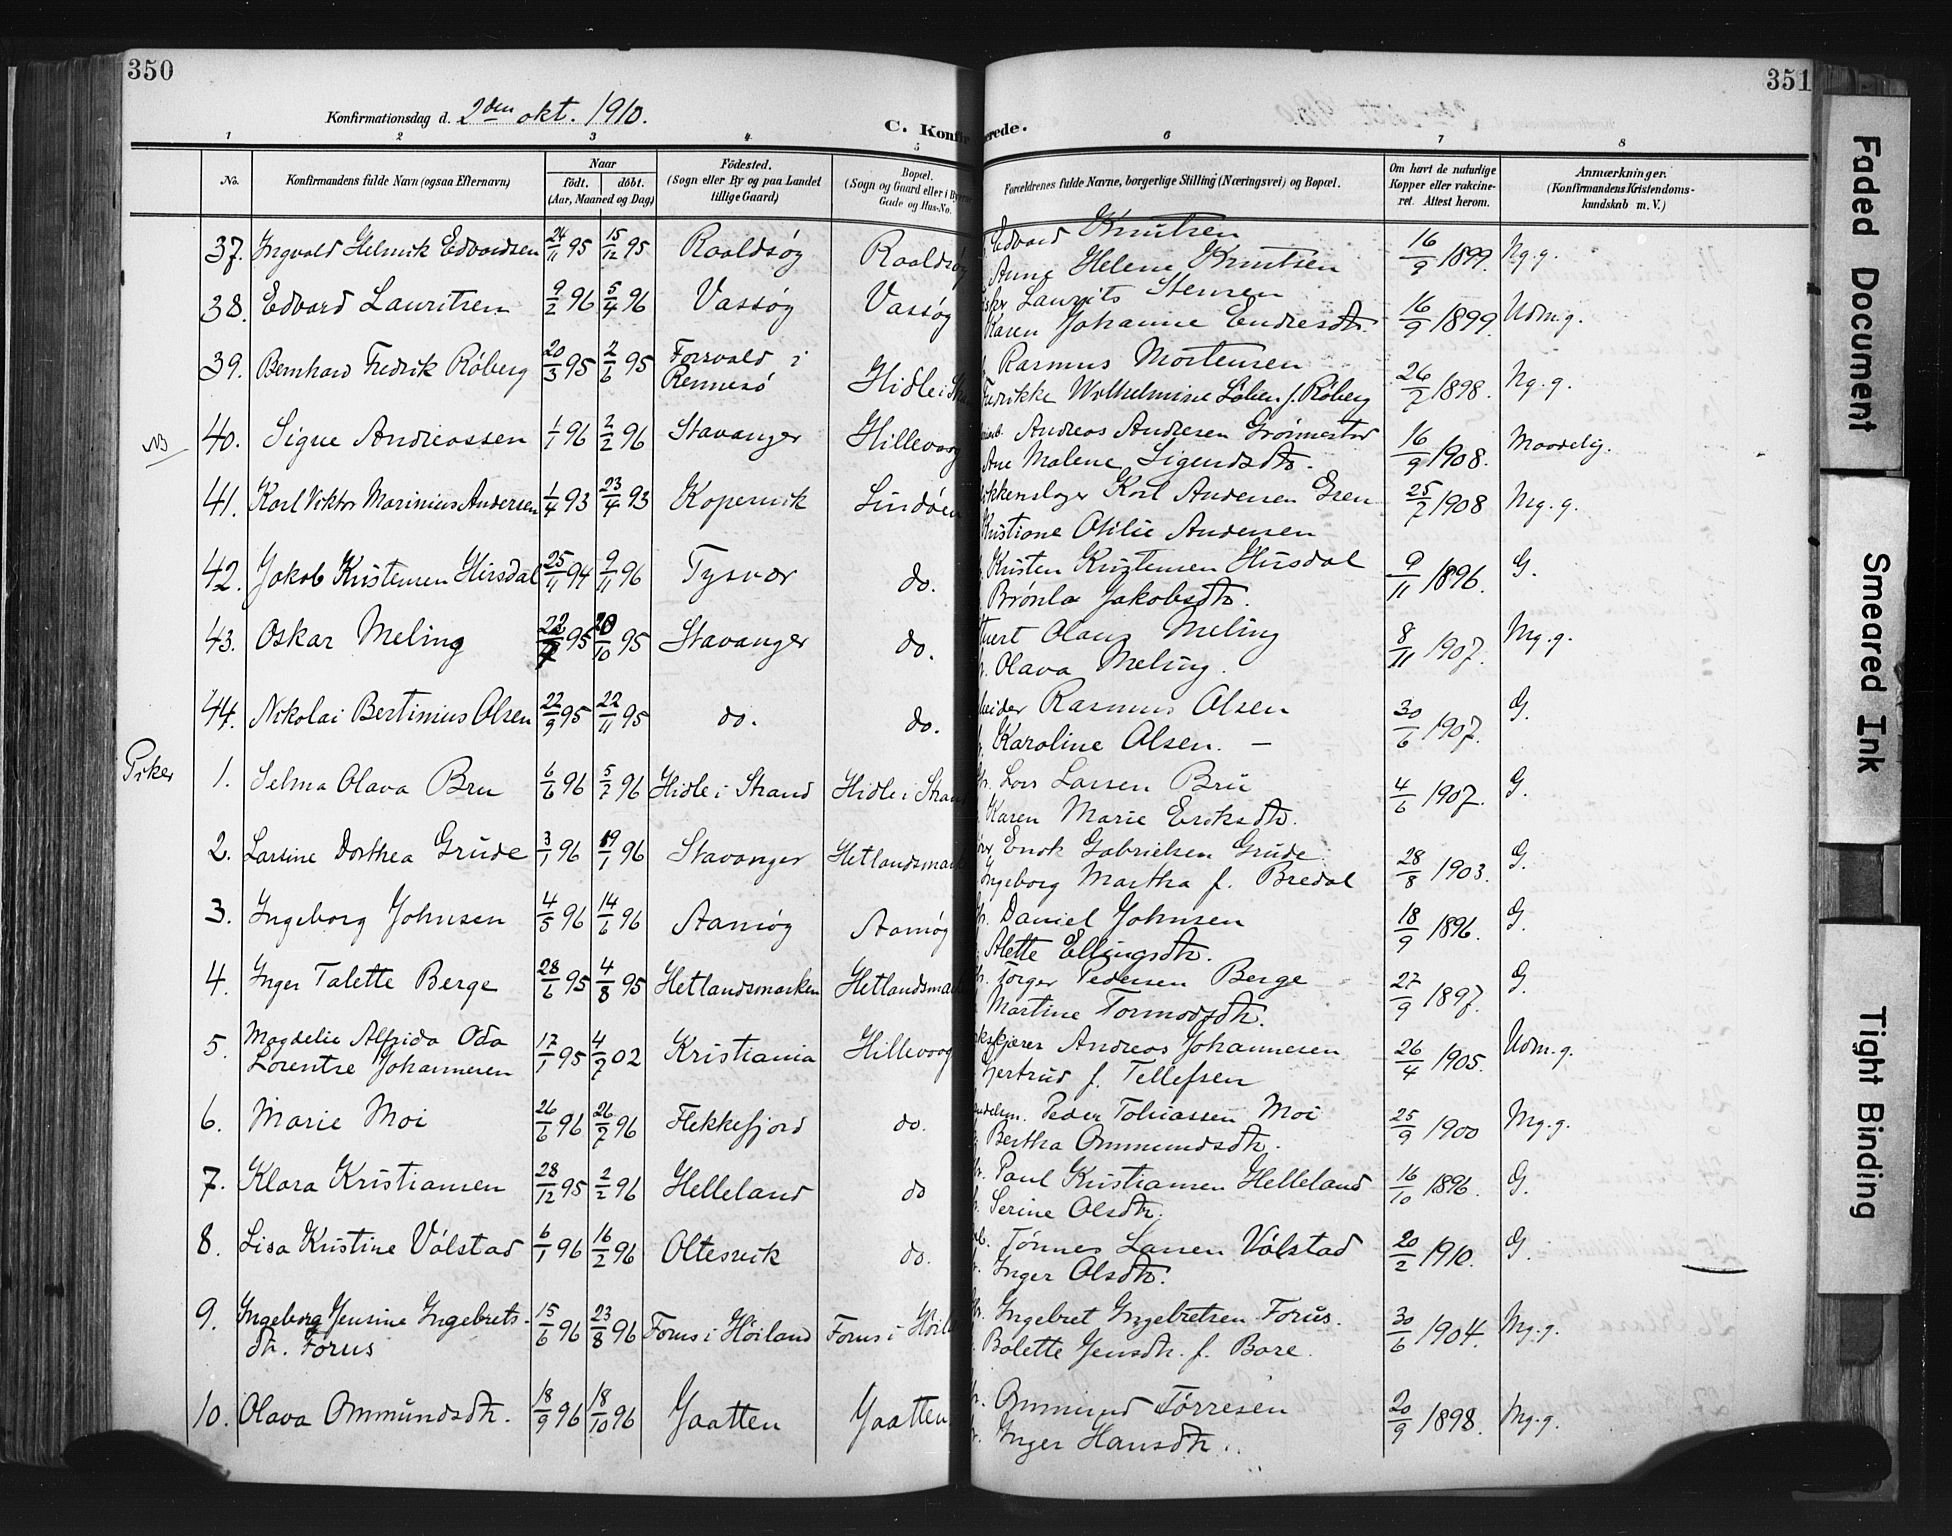 350
351
Konfirmationsdag d. 2den okt. 1910.
C. Konfir
erede.
1 2 3 4 5 6 7 8
No.
Konfirmandens fulde Navn (ogsaa Efternavn)
Naar
født. døbt.
(Aar, Maaned og Dag)
Fødested.
(Sogn eller By og paa Landet
tillige Gaard)
Bopæl.
(Sogn og Gaard eller i Byerne
Gade og Hus-No.
Forældrenes fulde Navne, borgerlige Stilling (Næringsvei) og Bopæl.
Om havt de naturlige
Kopper eller vakcine-
ret. Attest herom.
Anmærkninger.
(Konfirmandens Kristendoms-
kundskab m. V.)
37. Ingvald Helmik Edvardsen 24/11 95 15/12 95 Roaldsøy Roaldsøy Edvard Knutsen 16/9 1899. Mg.g.
Anne Helene Knutsen
38. Edvard Lauritsen 9/2 96 5/4 96 Vassøy Vassøy Laurits Stensen 16/9 1899. Udm.g.
Karen Johanne Endresdtr.
39. Bernhard Fredrik Röberg 20/3 95 2/6 95 Forsvold i Rasmus Mortensen 26/7 1898. Mg.g.
Rennesö Hidle i Stra Fredrikke Wilhelmine f. Röberg
NB 40. Signe Andreassen 1/1 96 2/2 96 Stavanger Hillevaag Andreas Andresen 16/9 1908. Maadelig.
Ane Malene
41. Karl Viktor Marinius Andersen 1/4 93 23/4 93 Kopervik Lindöen Karl Andersen 25/7 1908 Mg.g.
Kristiane Otilie Andersen
42. Jakob Kristensen Hirsdal 25/11 94 9/11 96 Tysvær do. Kristen Kristensen 9/11 1896. G.
Brönla Jakobsdtr.
43. Oskar Meling 95 20/10 95 Stavanger do. Olaus Meling 8/11 1907. Mg.g.
Olava Meling.
44. Nikolai Bertinius Olsen 22/9 95 22/11 95 do. do. Rasmus Olsen 30/6 1907. G.
Karoline Olsen. —
Piker 1. Selma Olava Bru 6/6 96 5/7 96 Hidle i Strand Hidle i Stran Lars Larsen Bru 4/6 1907. G.
Karen Marie Eriksdtr.
2. Larsine Dorthea Grude 3/1 96 19/1 96 Stavanger Hetlandsmark Enok Gabrielsen Grude 28/8 1903. G.
Ingeborg Martha f. Bredal
3. Ingeborg Johnsen 4/5 96 14/6 96 Aamöy Aamöy Daniel Johnsen 18/9 1896. G.
Alette Ellingsdtr.
4. Inger Talette Berge 28/6 95 4/8 95 Hetlandsmarken Hetlandsmark Törger Pedersen Berge 27/9 1897. G.
Martine Tormodsdtr.
5. Magdelie Alfrida Oda
Lorentse Johannesen 17/1 95 4/7 02 Kristiania Hillevaag Andreas Johannesen 26/4 1905. Udm.g.
Gjertrud f. Tellefsen
6. Marie Moi 26/6 96 26/7 96 Flekkefjord do. Peder Tobiassen Moi 25/9 1900 Mg.g.
Bertha Ommundsdtr.
7. Klara Kristiansen 28/12 95 2/2 96 Helleland do Paul Kristiansen Helleland 16/10 1896. G.
Serine Olsdtr.
8. Lisa Kristine Vålstad 6/1 96 16/2 96 Oltesvik do. Tönnes Larsen Vålstad 20/2 1910. G.
Inger Olsdtr.
9. Ingeborg Jensine Ingebrets-
dtr. Forus 15/6 96 23/8 96 Forus i Höiland Forus i Höila Ingebret Ingebretsen Forus. 30/6 1904. Mg.g.
Bolette Jensdtr. f. Bore.
10. Olava Ommundsdtr. 18/9 96 18/10 96 Gaatten Gaatten Ommund Törresen 20/9 1898. Mg.g.
Inger Hansdtr.
Faded Document
Smeared Ink
Tight Binding